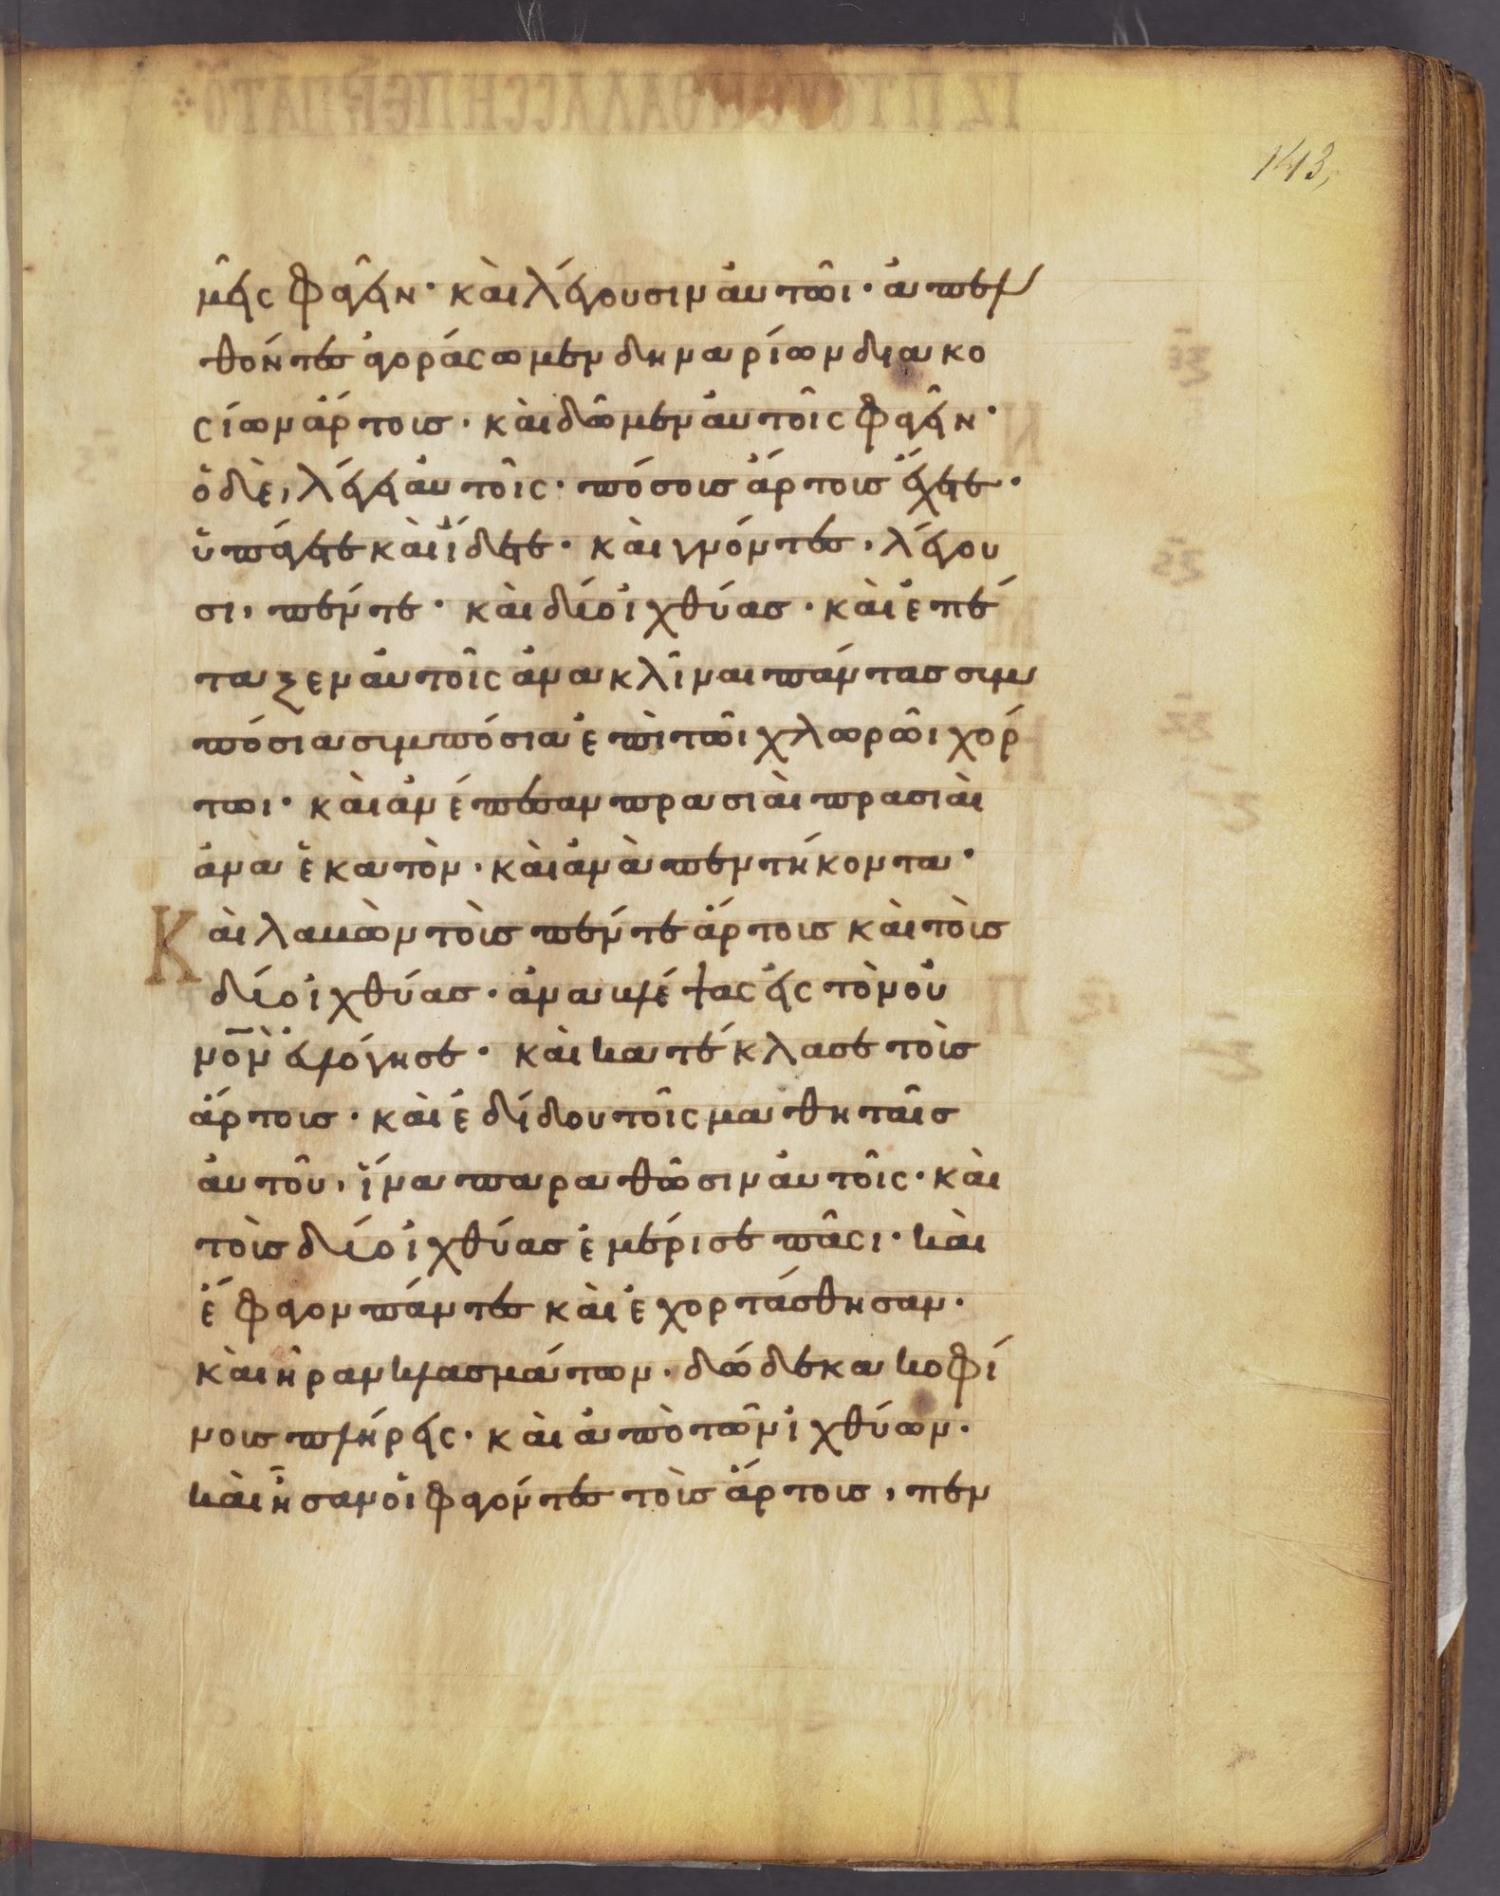 143,
μεῖς φαγεῖν· καὶ λέγουσιν αὐτῶι· ἀπελ
θόντες ἀγοράσωμεν δηναρίων διακο
σίων ἄρτους· καὶ δῶμεν αὐτοῖς φαγεῖν·
ὁ δὲ, λέγει αὐτοῖς· πόσους ἄρτους ἔχετε·
ὑπάγετε καὶ ἴδετε· καὶ γνόντες, λέγου
σι, πέντε· καὶ δύο ἰχθύας· καὶ ἐπέ
ταξεν αὐτοῖς ἀνακλῖναι πάντας συμ
πόσια συμπόσια ἐπὶ τῶι χλωρῶι χόρ
τωι· καὶ ἀνέπεσαν πρασιαὶ πρασιαὶ
ἀνὰ ἑκατὸν· καὶ ἀνὰ πεντήκοντα·
Καὶ λαβὼν τοὺς πέντε ἄρτους καὶ τοὺς
δύο ἰχθύας· ἀναβλέψας εἰς τὸν οὐ
νο̅ν̀ εὐλόγησε· καὶ κατέκλασε τοὺς
ἄρτους· καὶ ἐδίδου τοῖς μαθηταῖς
αὐτοῦ, ἵνα παραθῶσιν αὐτοῖς· καὶ
τοὺς δύο ἰχθύας ἐμέρισε πᾶσι· καὶ
ἔφαγον πάντες καὶ ἐχορτάσθησαν·
καὶ ἦραν κλασμάτων· δώδεκα κοφί
νους πλήρεις· καὶ ἀπὸ τῶν ἰχθύων·
καὶ ἦσαν οἱ φαγόντες τοὺς ἄρτους, πεν